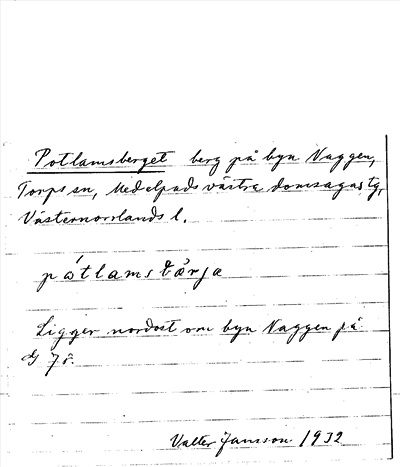 Potlamsberget berg på byn Naggen,
Torps sn, Medelpads västra domsagas tg,
Västernorrlands l.
pótlamsbärja
Ligger nordost om byn Naggen på
Valter Jansson 1932